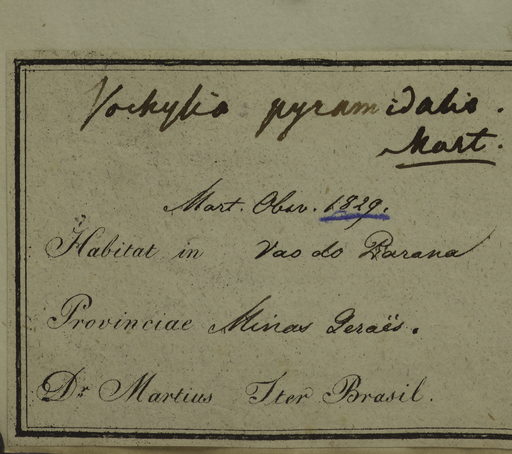 Vochysia pyramidalis.
Mart.
Mart. Obsv. 1829.
Habitat in Vao do Parana
Provinciae Minas Geraës.
Dr Martius Iter Brasil.